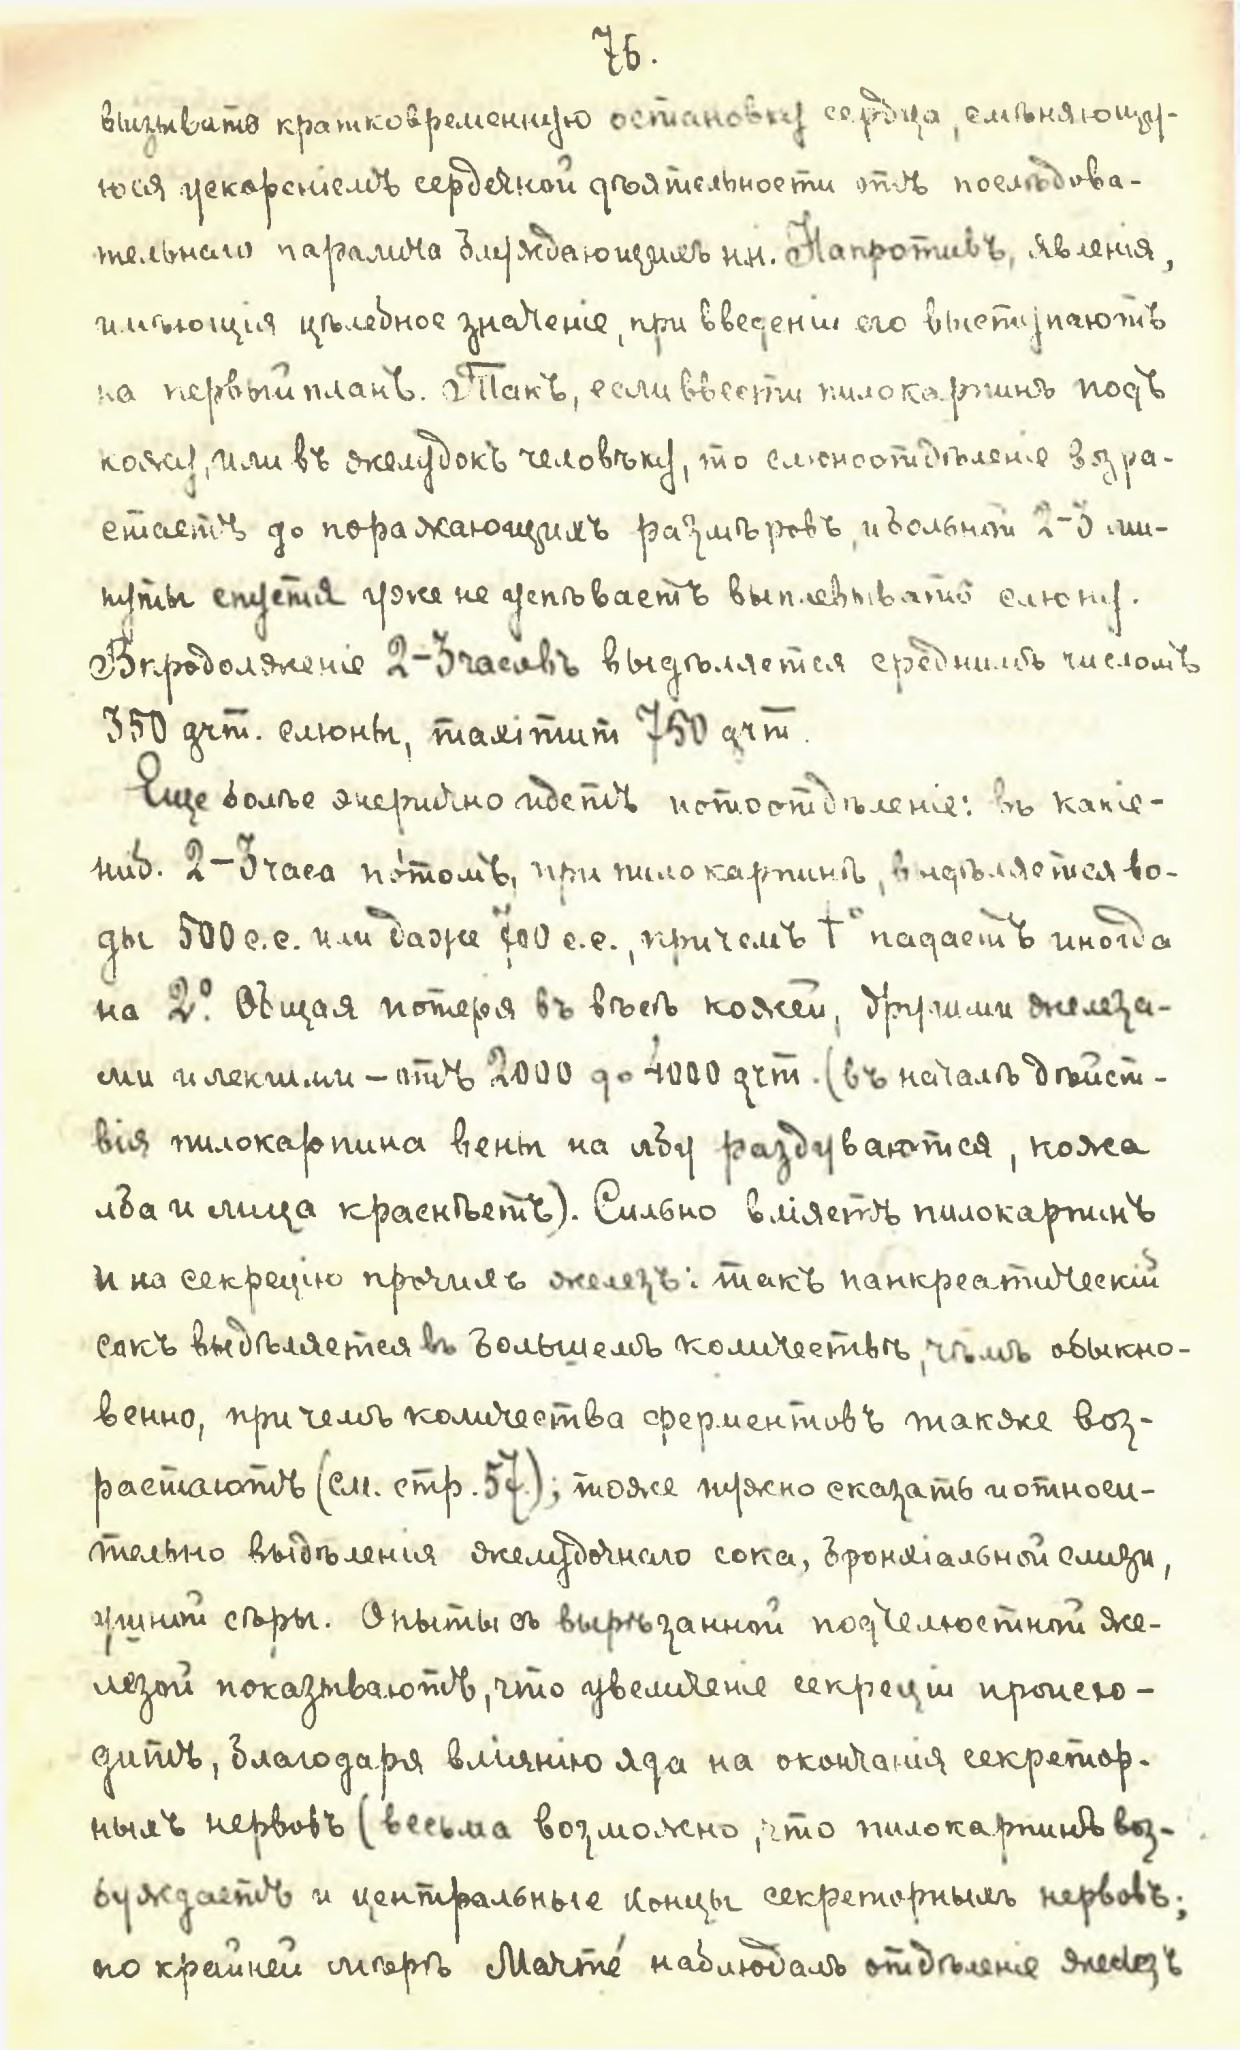 76.
вызывать кратковременную остановку сердца, смѣняющу-
юся ускореніемъ сердечной дѣятельности отъ послѣдова-
тельнаго паралича блуждающихъ нн. Напротивъ, явленія,
имѣющія цѣлебное значеніе, при введеніи его выступаютъ
на первый планъ. Такъ, если ввести пилокарпинъ подъ
кожу, или въ желудокъ человѣку, то слюноотдѣленіе возра-
стаетъ до поражающихъ размѣровъ, и больной 2–3 ми-
нуты спустя уже не успѣваетъ выплевывать слюну.
Впродолженіе 2–3 часовъ выдѣляется среднимъ числомъ
350 грт. слюны, maximum 750 грт.
Еще болѣе энергично идетъ потоотдѣленіе: въ какіе-
ниб. 2–3 часа по́томъ, при пилокарпинѣ, выдѣляется во-
ды 500 с.с. или даже 700 с.с., причемъ t° падаетъ иногда
на 2°. Общая потеря въ вѣсѣ кожей, другими железа-
ми и легкими – отъ 2000 до 4000 грт. (въ началѣ дѣйст-
вія пилокарпина вены на лбу раздуваются, кожа
лба и лица краснѣетъ). Сильно вліяетъ пилокарпинъ
и на секрецію прочихъ железъ: такъ панкреатическій
сокъ выдѣляется въ большемъ количествѣ, чѣмъ обыкно-
венно, при чемъ количества ферментовъ также воз-
растаютъ (см. стр. 57.); тоже нужно сказать и относи-
тельно выдѣленія желудочнаго сока, бронхіальной слизи,
ушной сѣры. Опыты съ вырѣзанной подчелюстной же-
лезой показываютъ, что увеличеніе секреціи происхо-
дитъ, благодаря вліянію яда на окончанія секретор-
ныхъ нервовъ (весьма возможно, что пилокарпинъ воз-
буждаетъ и центральные концы секреторныхъ нервовъ;
по крайней мѣрѣ наблюдалъ отдѣленіе железъ